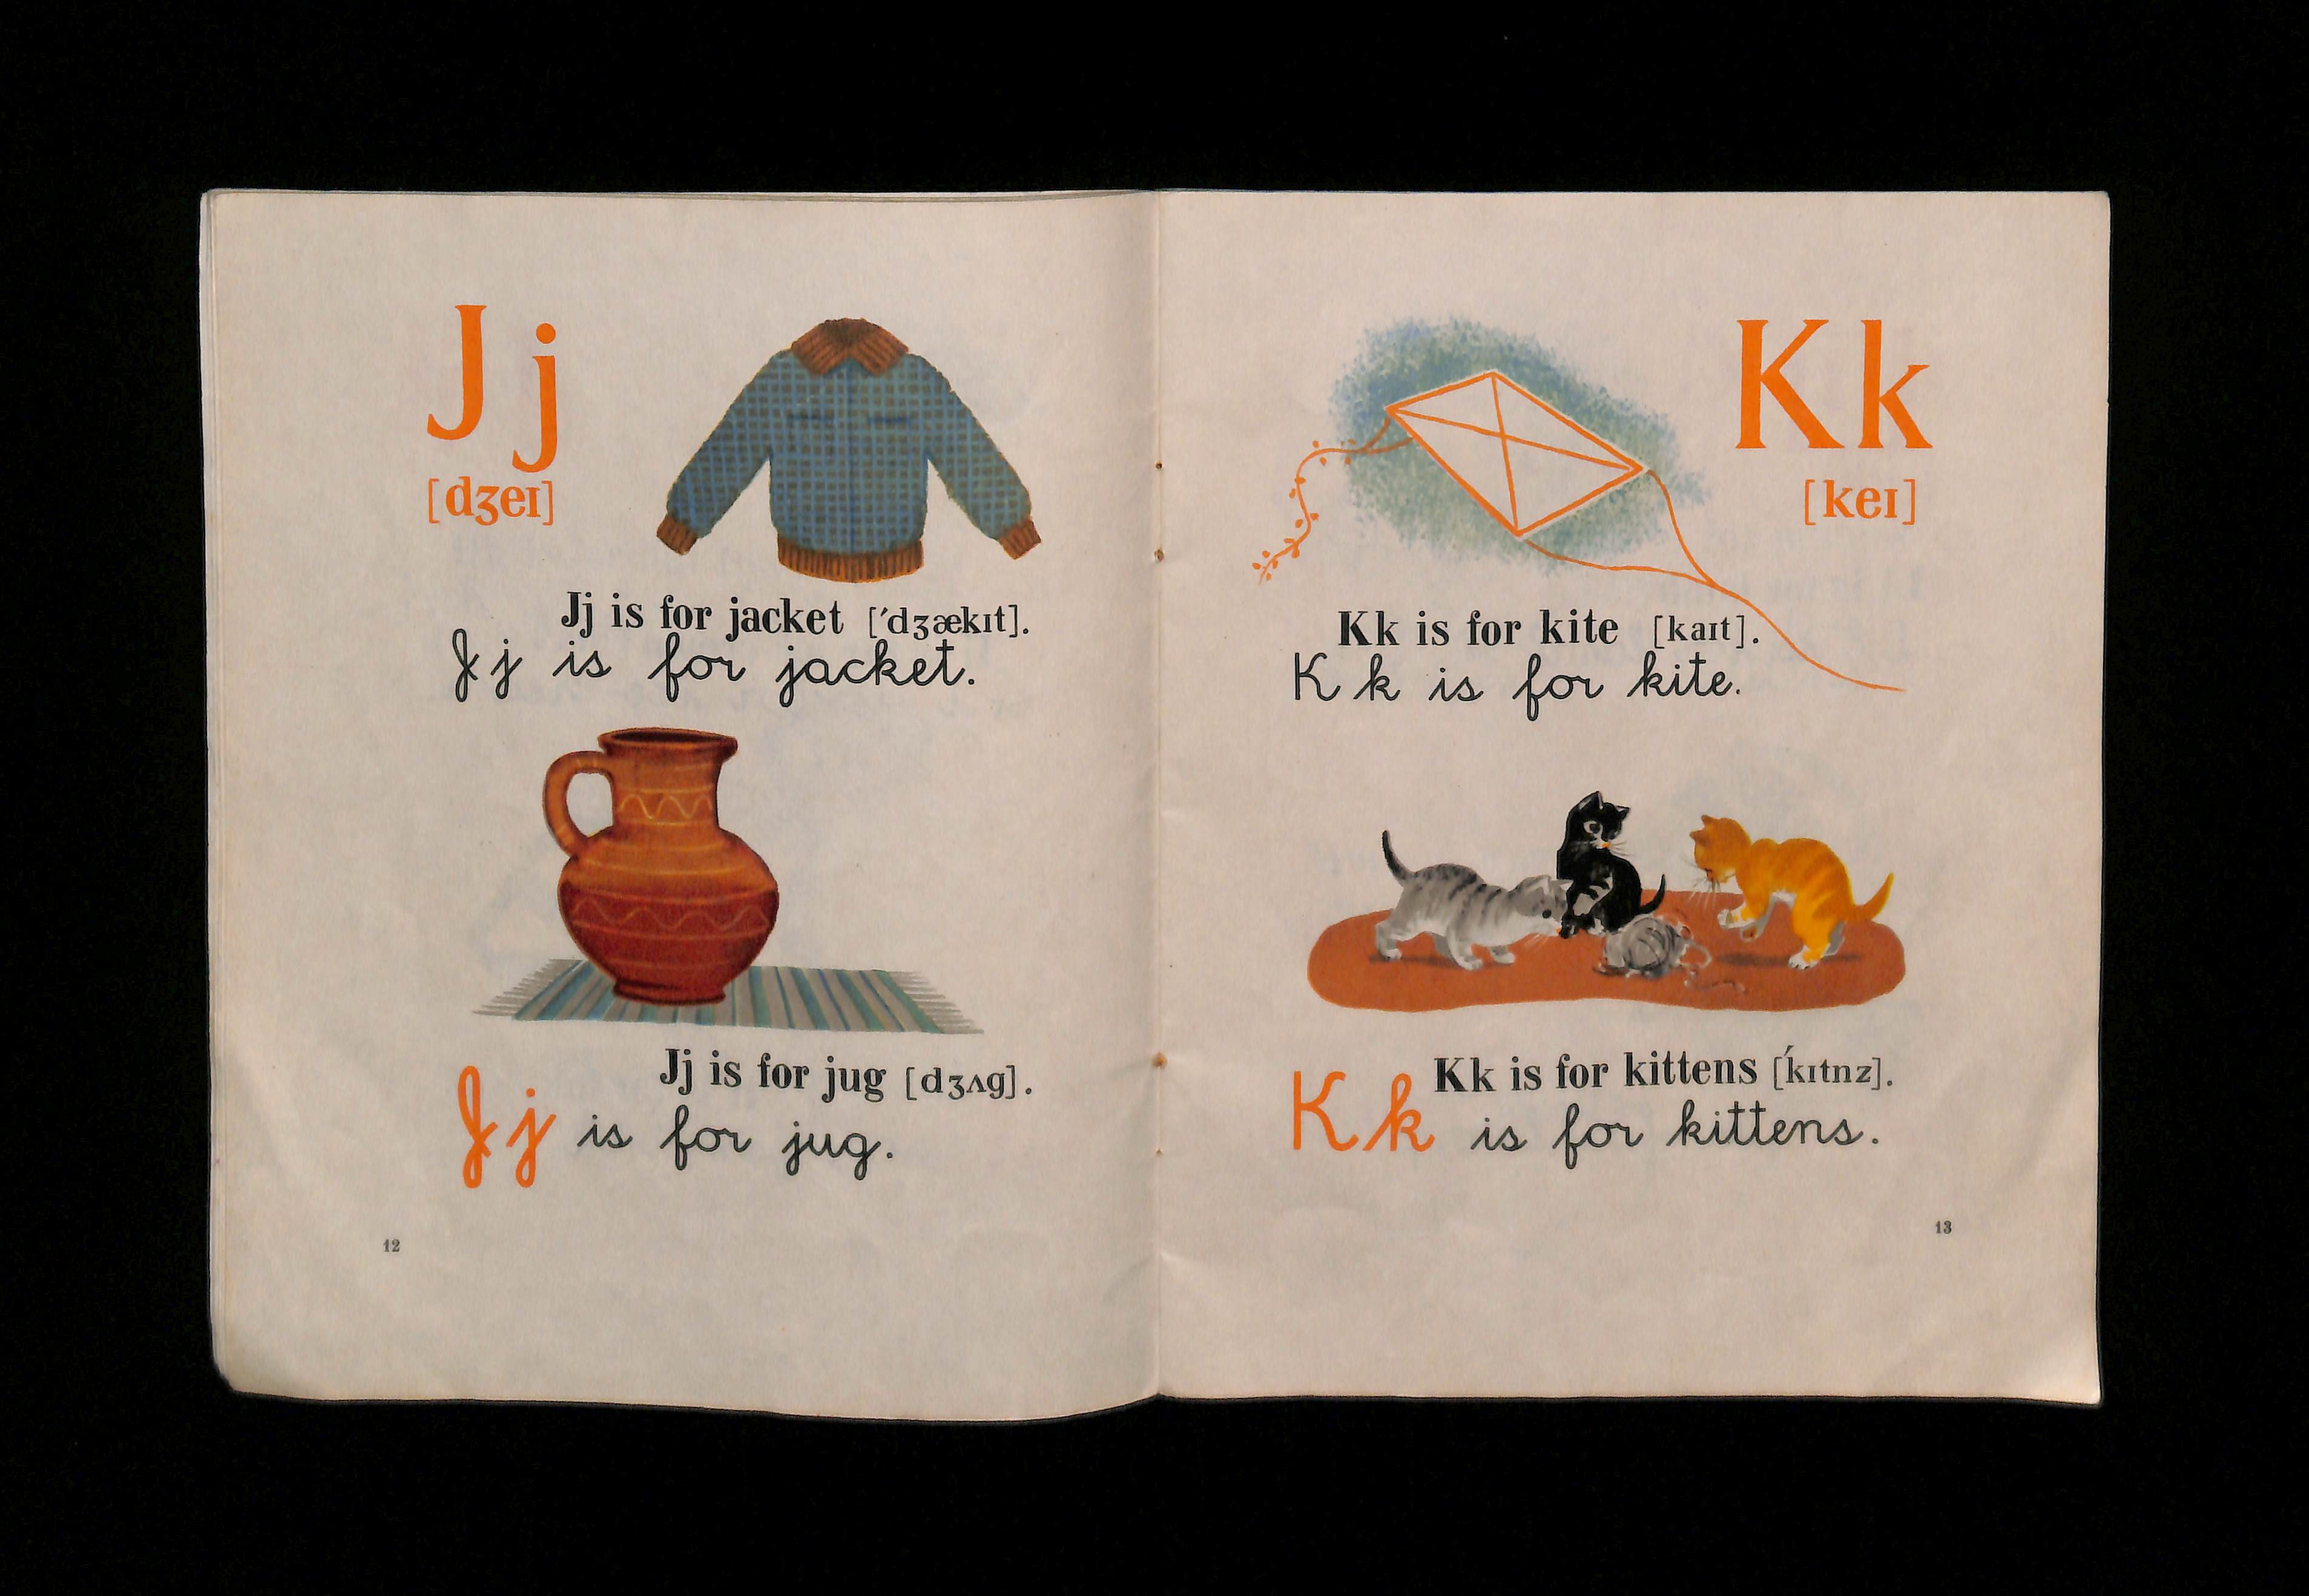 Jj
[dʒeɪ]
Jj is for jacket [ˈdʒækɪt].
Jj is for jacket.
Jj is for jug [dʒʌg].
Jj is for jug.
12
Kk
[keɪ]
Kk is for kite [kaɪt].
Kk is for kite.
Kk is for kittens [ˈkɪtnz].
Kk is for kittens.
13